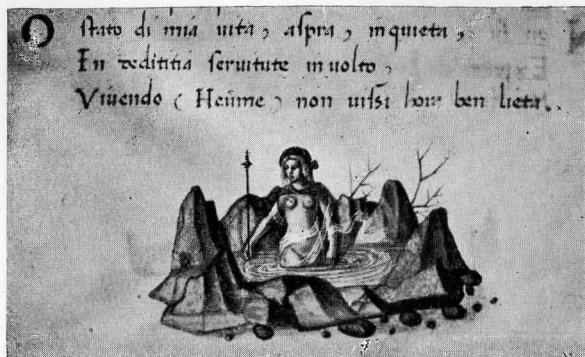 O stato di mia uita, aspra, inquieta,
In dedititia seruitute inuolto,
Viuendo (Heume) non uissi hora ben lieta.